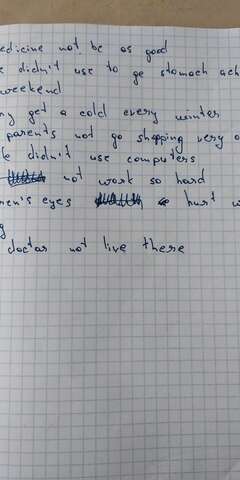 edicine not be as good
didn't use to ge stomach ach
weekend
get a cold every winter
parents not go shopping very o
didn't use computers
not work so hard
en's eyes hurt w
g
doctor not live there